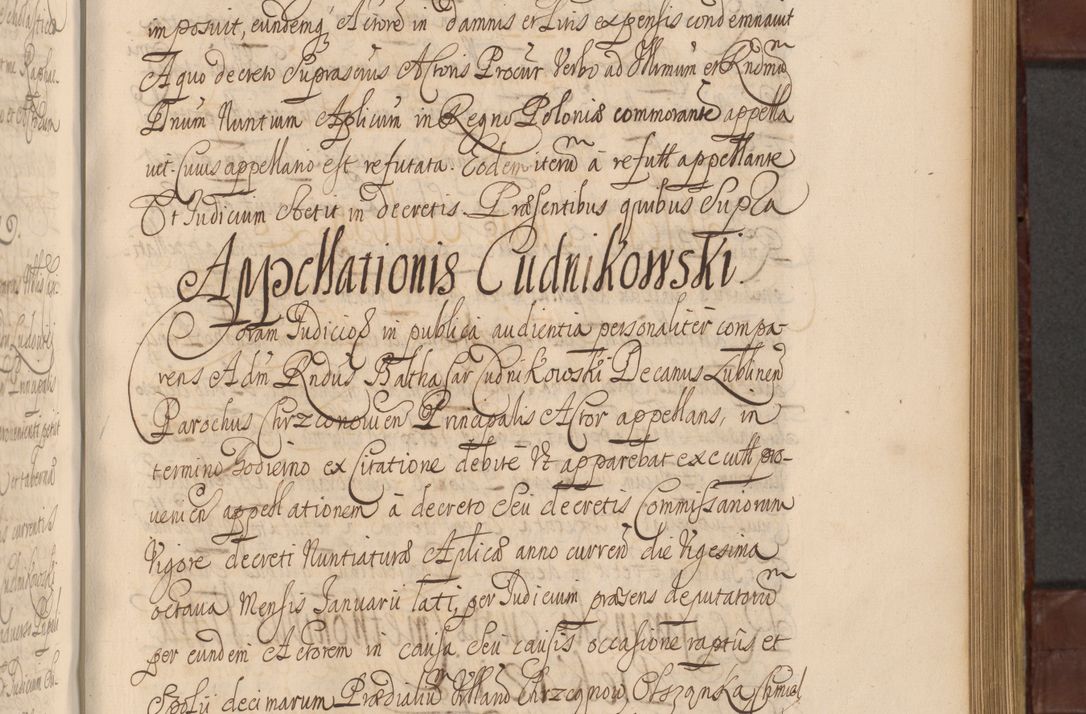 imposuit, eundemq, Actorē in damnis et Litis expensis condemnavit
A quo decreto Suprascrius Actoris Procur Verbo ad Illmum et Rndm̄u
Dnum Nuntium Aplicum in Regno Poloniæ commorante appella
vit. Cuius appellatio est refutata. Eodem iterū à refutt appellante
Et Judicium stetit in decretis. Præsentibus quibus Supra
Appellationis Cudnikowski.
Coram Judicioq in publica audientia personaliter compa-
rens Adm Rndus Balthasar Cudnikowski Decanus Lublinen
Parochus Chrzconovien Principalis Actor appellans, in
termino hodierno ex Citatione debite Ut apparebat executt pro-
venien appellationem à decreto Seu decretis Commissariorum
Vigore decreti Nuntiaturæ Aplicæ anno curren die Vigesima
octava Mensis Januarii lati, per Judicium præsens deputatorū
per eundem Actorem in causa Seu causis occasione raptus et
Spolii decimarum Prædialiū Villarū Chrzcgnow, Olszanka Chmiel